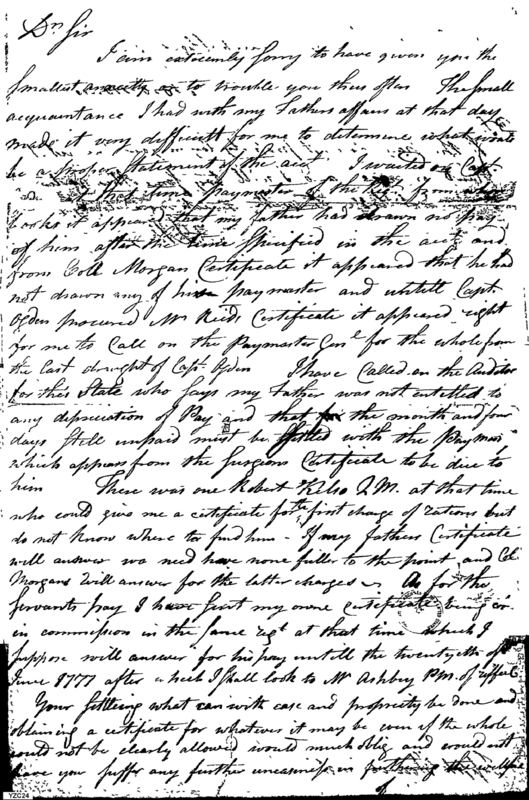 Dr Sir
I am extreemly sorry to have given you the
smallest anxiety or to trouble you thus often The small
acquaintance I had with my Fathers affairs at that day
made it very difficult for me to determine what would
be a proper statement of the acct I waited on Capt
first time paymaster of the Regt from whose
books it appeared that my father had drawn no pay
of him after the time specified in the acct and
from Coll Morgan Certificate it appeared that he had
not drawn any of his paymaster and untill Capt
Ogden procured Mr Reids Certificate it appeared right
for me to Call on the Paymaster Genl for the whole from
the last draught of Capt Ogden I have Called on the Auditor
for this State who says my Father was not entitled to
any depreciation of Pay and that for the month and four
days still unpaid must be settled with the Paymas
which appears from the Surgeons Certificate to be due to
him There was one Robert Kelso Q.M. at that time
who could give me a certificate for the first charge of rations but
do not know where to find him - If my fathers Certificate
will answer we need have none fuller to the point and Col
Morgans will answer for the latter charges As for the
servants pay I have sent my owne certificate being
in commission in the same regt at that time which I
suppose will answer for his pay untill the twentyeth of
June 1777 after which I shall look to Mr Ashby Pm. of
Your settleing what can with ease and propriety be done and
obtaining a certificate for whatever it may be even if the whole
could not be clearly allowed would much oblig and would not
have you suffer any further uneasiness in
of
YZC24